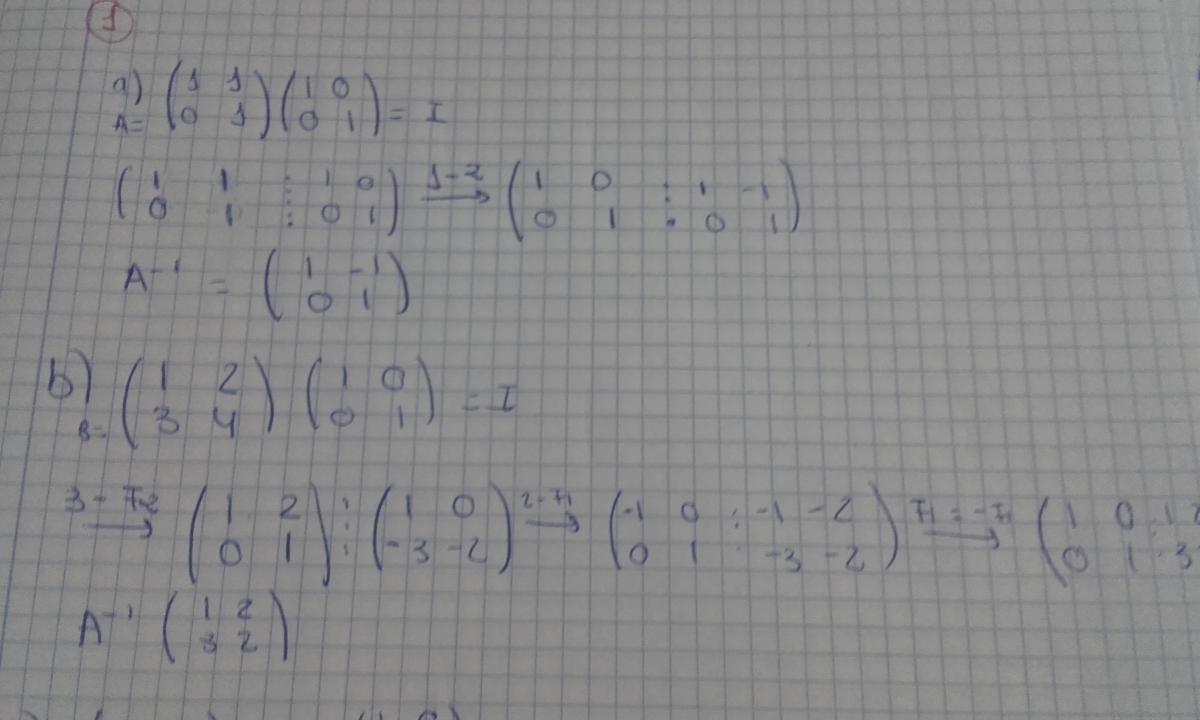 1
a) A= (1 1 / 0 1) (1 0 / 0 1) = I
(1 1 ⋮ 1 0 / 0 1 ⋮ 0 1) 1-2 → (1 0 : 1 -1 / 0 1 : 0 1)
A⁻¹ = (1 -1 / 0 1)
b) B= (1 2 / 3 4) (1 0 / 0 1) = I
→ (1 2 / 0 1) ⋮ (1 0 / -3 -2) → (-1 0 : -1 -2 / 0 1 -3 -2) F1 = -F1 → (1 0 : 1 2 / 0 1 : 3
A⁻¹ (1 2 / 3 2)